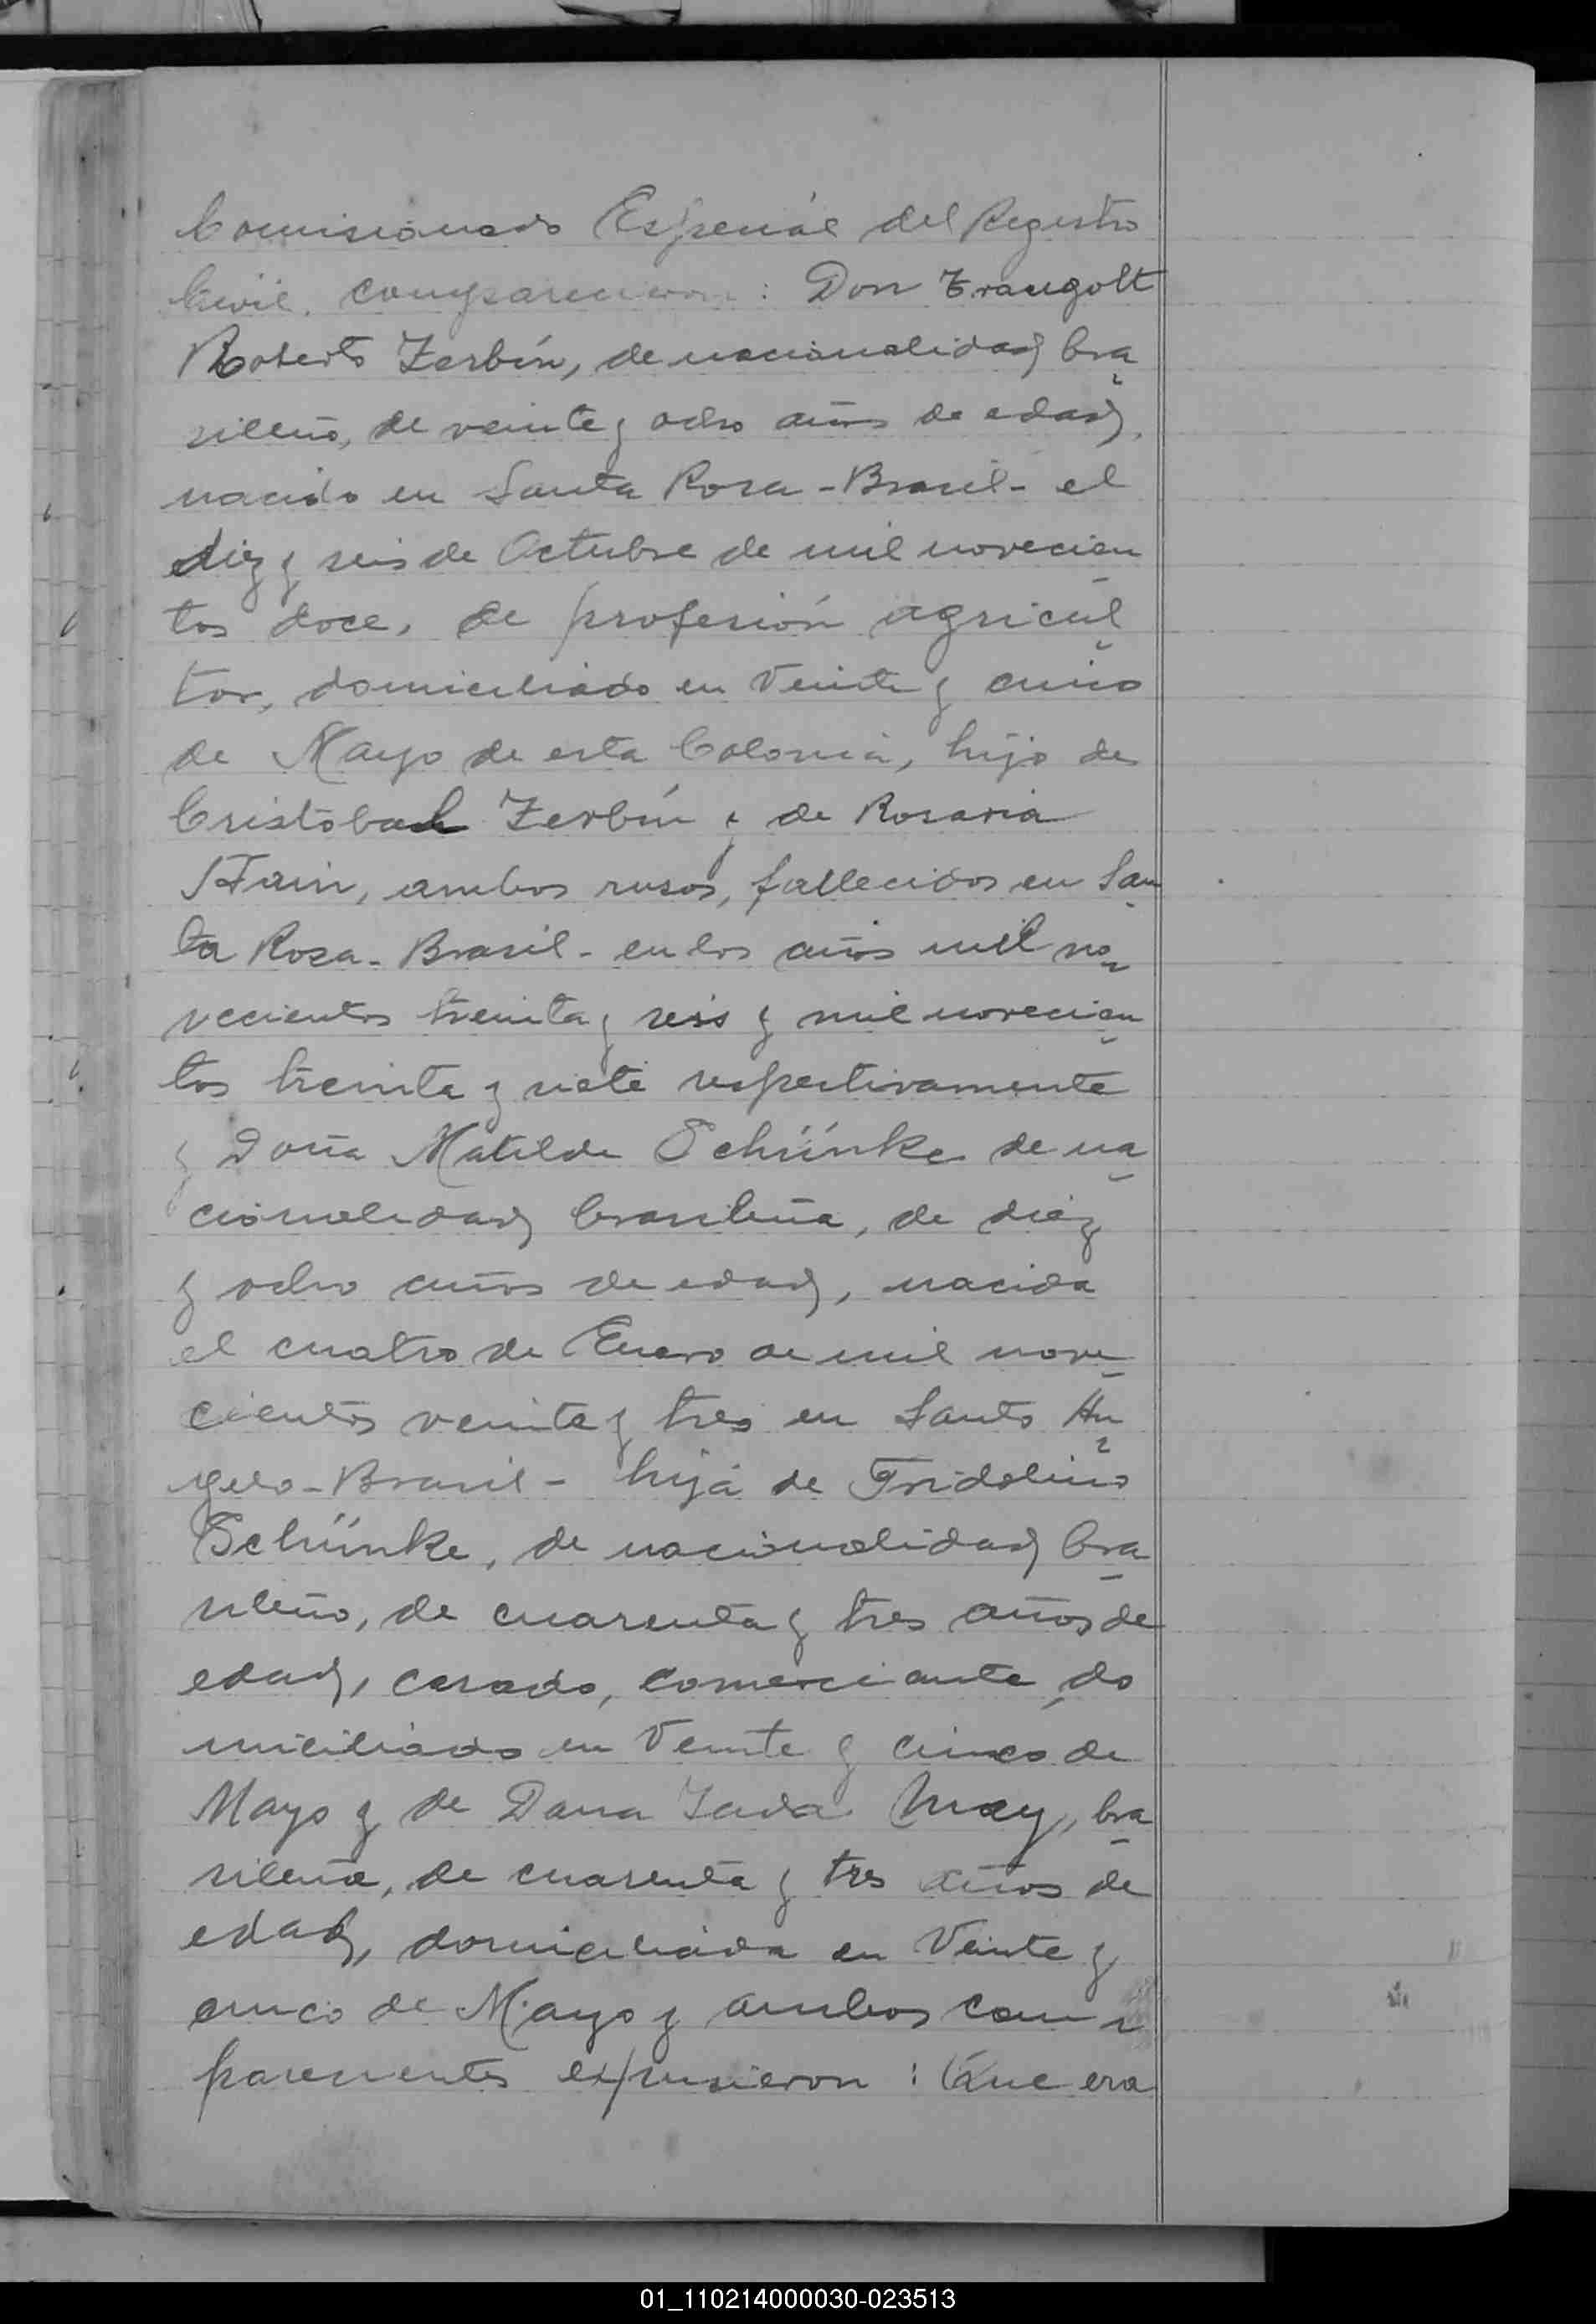 Comisionado Especial del Registro
Civil, comparecieron: Don Traugott
Roberto Zerbin, de nacionalidad bra
sileño, de veinte y ocho años de edad,
nacido en Santa Rosa - Brasil - el
diez y seis de Octubre de mil novecien
tos doce, de profesión agricul
tor, domiciliado en Veinte y cinco
de Mayo de esta Colonia, hijo de
Cristobal Zerbin y de Rosaria
ambos rusos, fallecidos en San
ta Rosa - Brasil - en los años mil no
vecientos treinta y seis y mil novecien
tos treinta y siete respectivamente
y Doña Matilde Schünke de na
cionalidad brasileña, de diez
y ocho años de edad, nacida
el cuatro de Enero de mil nove
cientos veinte y tres en Santo An
gelo - Brasil - hija de Fridolino
Schünke, de nacionalidad bra
sileño, de cuarenta y tres años de
edad, casado, comerciante, do
miciliado en Veinte y cinco de
Mayo y de Dana May, bra
sileña, de cuarenta y tres años de
edad, domiciliada en Veinte y
cinco de Mayo y ambos com
parecientes expusieron: Que era
01_110214000030-023513